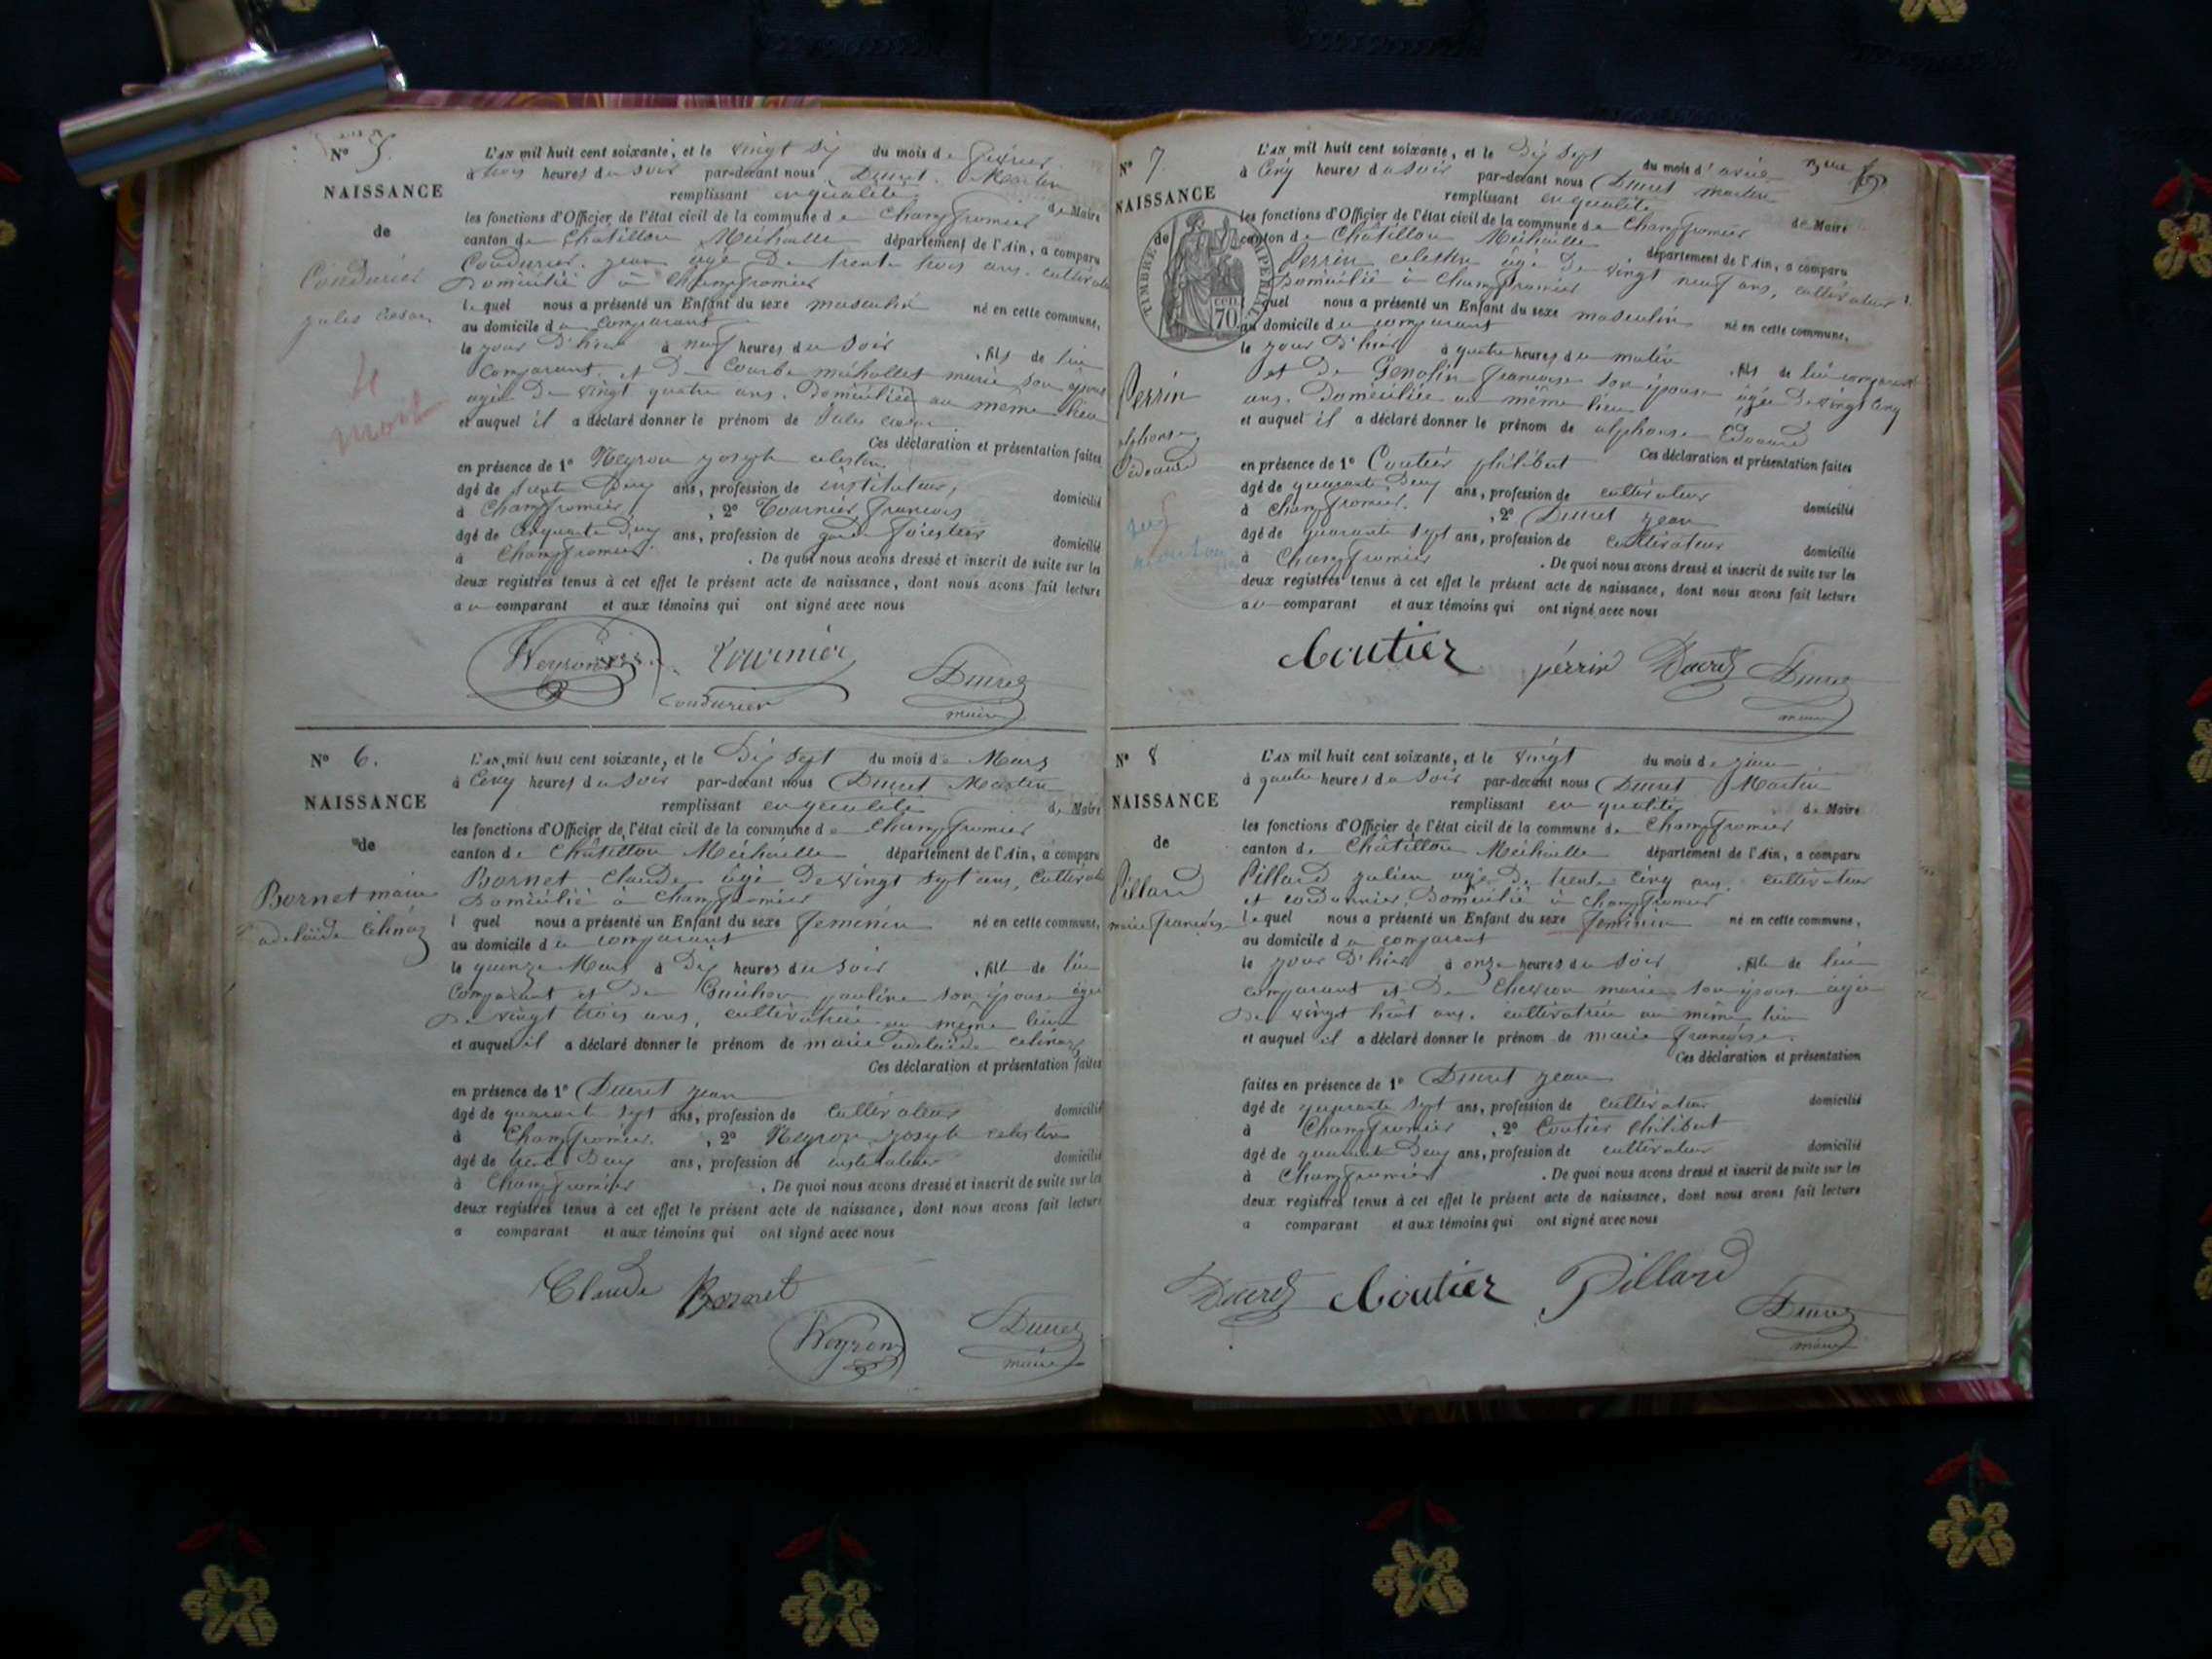 N° 5.
NAISSANCE
de
Coudurier
jules cesar
mort
L'AN mil huit cent soixante, et le vingt six du mois de fevrier
à trois heures du soir par-devant nous Ducret Martin
remplissant en qualité de Maire
les fonctions d'Officier de l'état civil de la commune de Champfromier
canton de Châtillon Michaille département de l'Ain, a comparu
Coudurier jean âgé de trente trois ans, cultivateur
domicilié à Champfromier
lequel nous a présenté un Enfant du sexe masculin né en cette commune,
au domicile du comparant
le jour d'hier à neuf heures du soir , fils de lui
comparant et de Courbe michollet marie son épouse
agée de vingt quatre ans, domiciliée au même lieu
et auquel il a déclaré donner le prénom de Jules cesar
Ces déclaration et présentation faites
en présence de 1° Neyron joseph celestin
âgé de trente deux ans, profession de instituteur, domicilié
à Champfromier , 2° Tournier françois
âgé de cinquante deux ans, profession de garde forestier domicilié
à Champfromier . De quoi nous avons dressé et inscrit de suite sur les
deux registres tenus à cet effet le présent acte de naissance, dont nous avons fait lecture
au comparant et aux témoins qui ont signé avec nous
Neyron Tournier Ducret
Coudurier maire
N° 6.
NAISSANCE
de
Bornet marie
adelaïde Célinaz
L'AN mil huit cent soixante, et le dix sept du mois de Mars
à cinq heures du soir par-devant nous Ducret Martin
remplissant en qualité de Maire
les fonctions d'Officier de l'état civil de la commune de Champfromier
canton de Châtillon Michaille département de l'Ain, a comparu
Bornet Claude âgé de vingt sept ans, cultivateur
domicilié à Champfromier
l quel nous a présenté un Enfant du sexe feminin né en cette commune,
au domicile du comparant
le quinze Mars à dix heures du soir , fille de lui
comparant et de Guichon pauline son épouse âgée
de vingt trois ans, cultivatrice au même lieu
et auquel il a déclaré donner le prénom de marie adelaïde celinaz
Ces déclaration et présentation faites
en présence de 1° Ducret jean
âgé de quarante sept ans, profession de cultivateur domicilié
à Champfromier , 2° Neyron joseph celestin
âgé de trente deux ans, profession de instituteur domicilié
à Champfromier . De quoi nous avons dressé et inscrit de suite sur les
deux registres tenus à cet effet le présent acte de naissance, dont nous avons fait lecture
a comparant et aux témoins qui ont signé avec nous
Claude Bornet
Neyron Ducret
maire
N° 7.
NAISSANCE
de
TIMBRE IMPERIAL
70 CEN.
Perrin
alphonse
Edouard
L'AN mil huit cent soixante, et le dix sept du mois d'avril
à cinq heures du soir par-devant nous Ducret martin
remplissant en qualité de Maire
les fonctions d'Officier de l'état civil de la commune de Champfromier
canton de Châtillon Michaille département de l'Ain, a comparu
Perrin celestin âgé de vingt neuf ans, cultivateur
domicilié à Champfromier
lequel nous a présenté un Enfant du sexe masculin né en cette commune,
au domicile du comparant
le jour d'hier à quatre heures du matin , fils de lui comparant
et de Genolin françoise son épouse âgée de vingt cinq
ans. Domiciliée au même lieu
et auquel il a déclaré donner le prénom de alphonse Edouard
Ces déclaration et présentation faites
en présence de 1° Coutier philibert
âgé de quarante deux ans, profession de cultivateur domicilié
à Champfromier. , 2° Ducret jean
âgé de quarante sept ans, profession de cultivateur domicilié
à Champfromier . De quoi nous avons dressé et inscrit de suite sur les
deux registres tenus à cet effet le présent acte de naissance, dont nous avons fait lecture
au comparant et aux témoins qui ont signé avec nous
Coutier perrin Ducret Ducret
maire
N° 8
NAISSANCE
de
Pillard
marie françoise
L'AN mil huit cent soixante, et le vingt du mois de juin
à quatre heures du soir par-devant nous Ducret Martin
remplissant en qualité de Maire
les fonctions d'Officier de l'état civil de la commune de Champfromier
canton de Châtillon Michaille département de l'Ain, a comparu
Pillard julien agé de trente cinq ans, cultivateur
et cordonnier, domicilié à Champfromier
lequel nous a présenté un Enfant du sexe feminin né en cette commune,
au domicile du comparant
le jour d'hier à onze heures du soir , fille de lui
comparant et de Chevron marie son épouse agée
de vingt huit ans, cultivatrice au même lieu
et auquel il a déclaré donner le prénom de marie françoise.
Ces déclaration et présentation
faites en présence de 1° Ducret jean
âgé de quarante sept ans, profession de cultivateur domicilié
à Champfromier , 2° Coutier Philibert
âgé de quarante deux ans, profession de cultivateur domicilié
à Champfromier . De quoi nous avons dressé et inscrit de suite sur les
deux registres tenus à cet effet le présent acte de naissance, dont nous avons fait lecture
a comparant et aux témoins qui ont signé avec nous
Ducret Coutier Pillard Ducret
maire